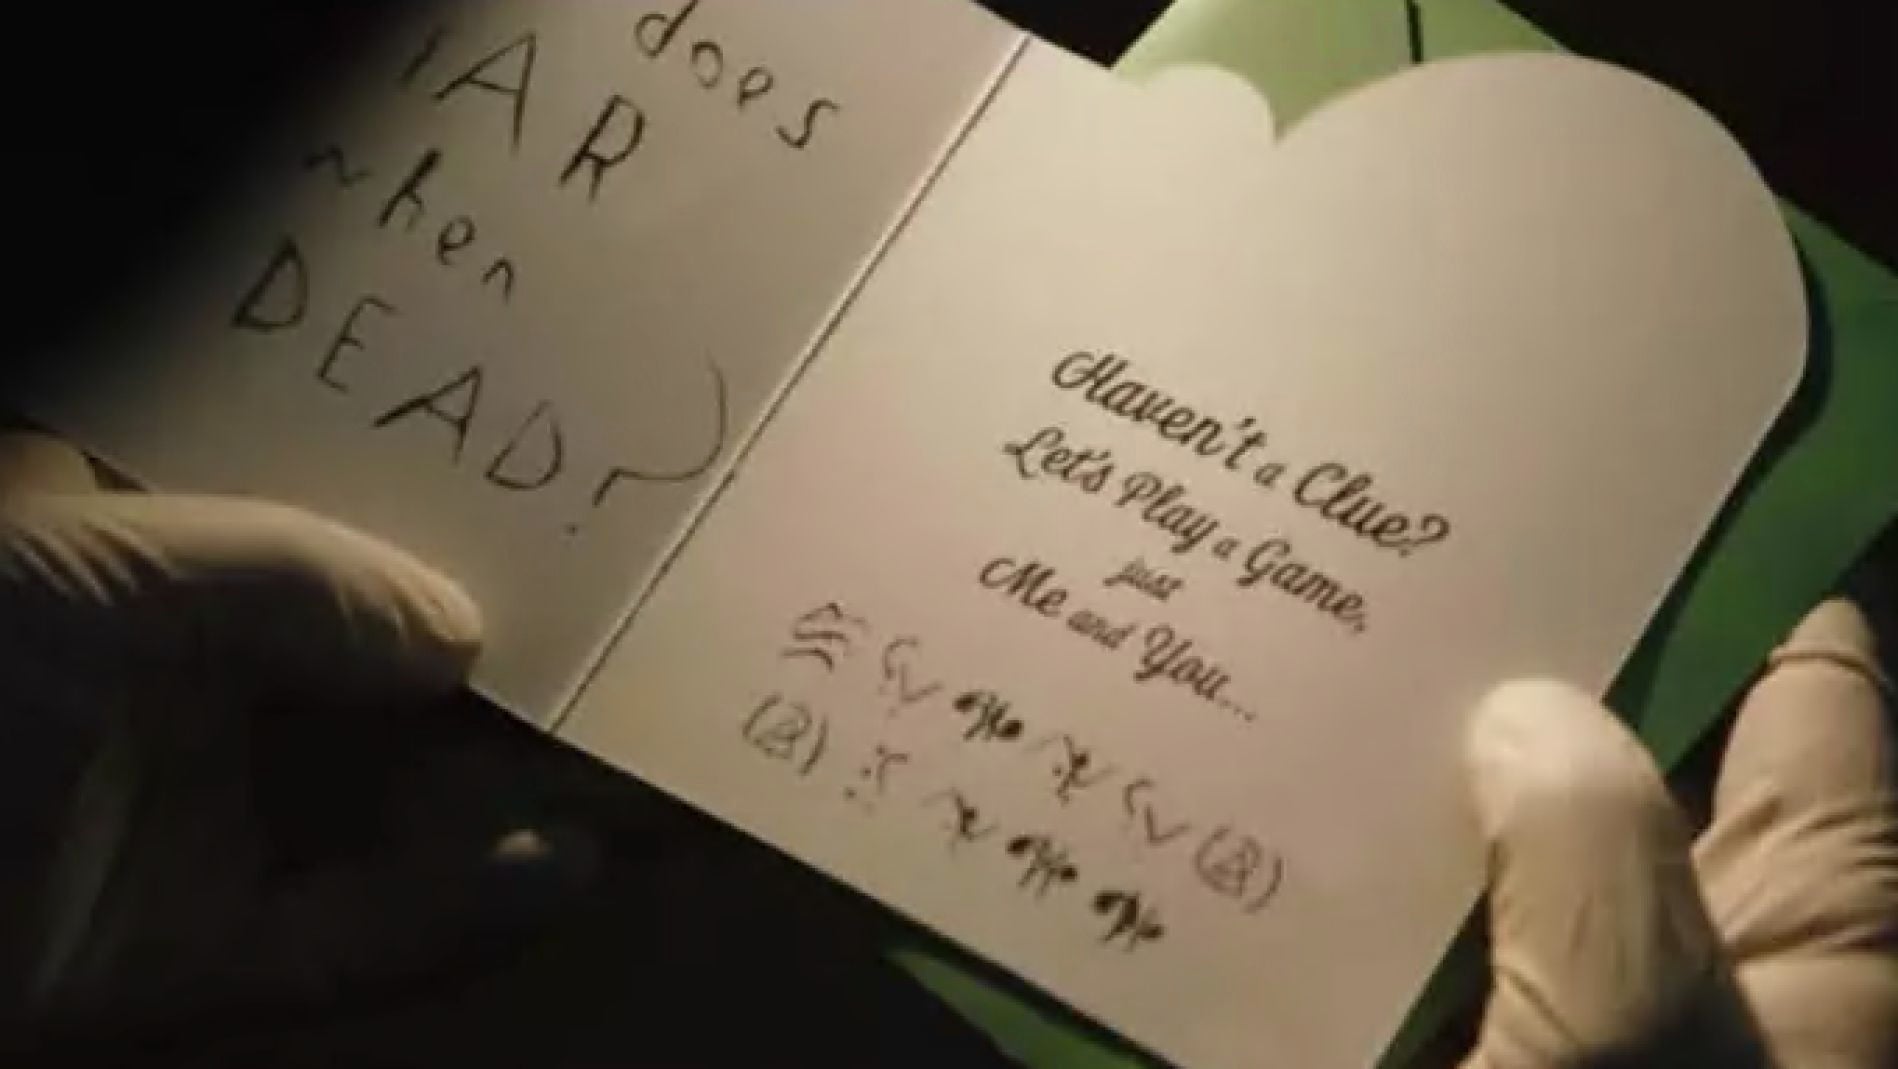 does
IAR
when
DEAD?
Haven't a Clue?
Let's Play a Game,
just
Me and You...